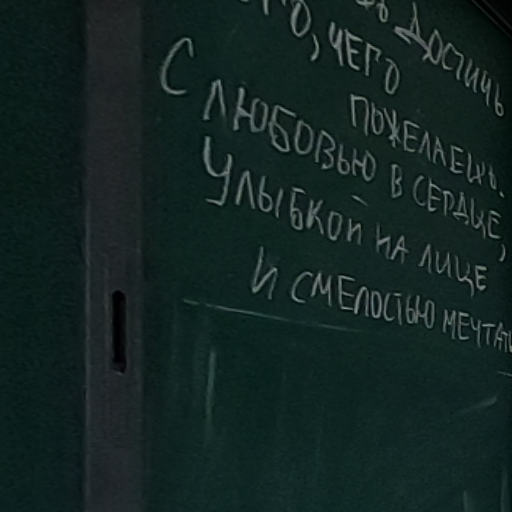 достичь
, чего
пожелаешь.
С любовью в сердце,
улыбкой на лице
и смелостью мечтать